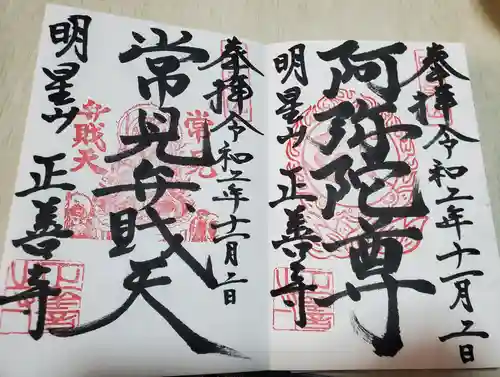 奉拝 令和二年十一月二日
阿弥陀尊
明星山 正善寺
奉拝 令和二年十一月二日
常見弁戝天
常見
弁戝天
明星山 正善寺